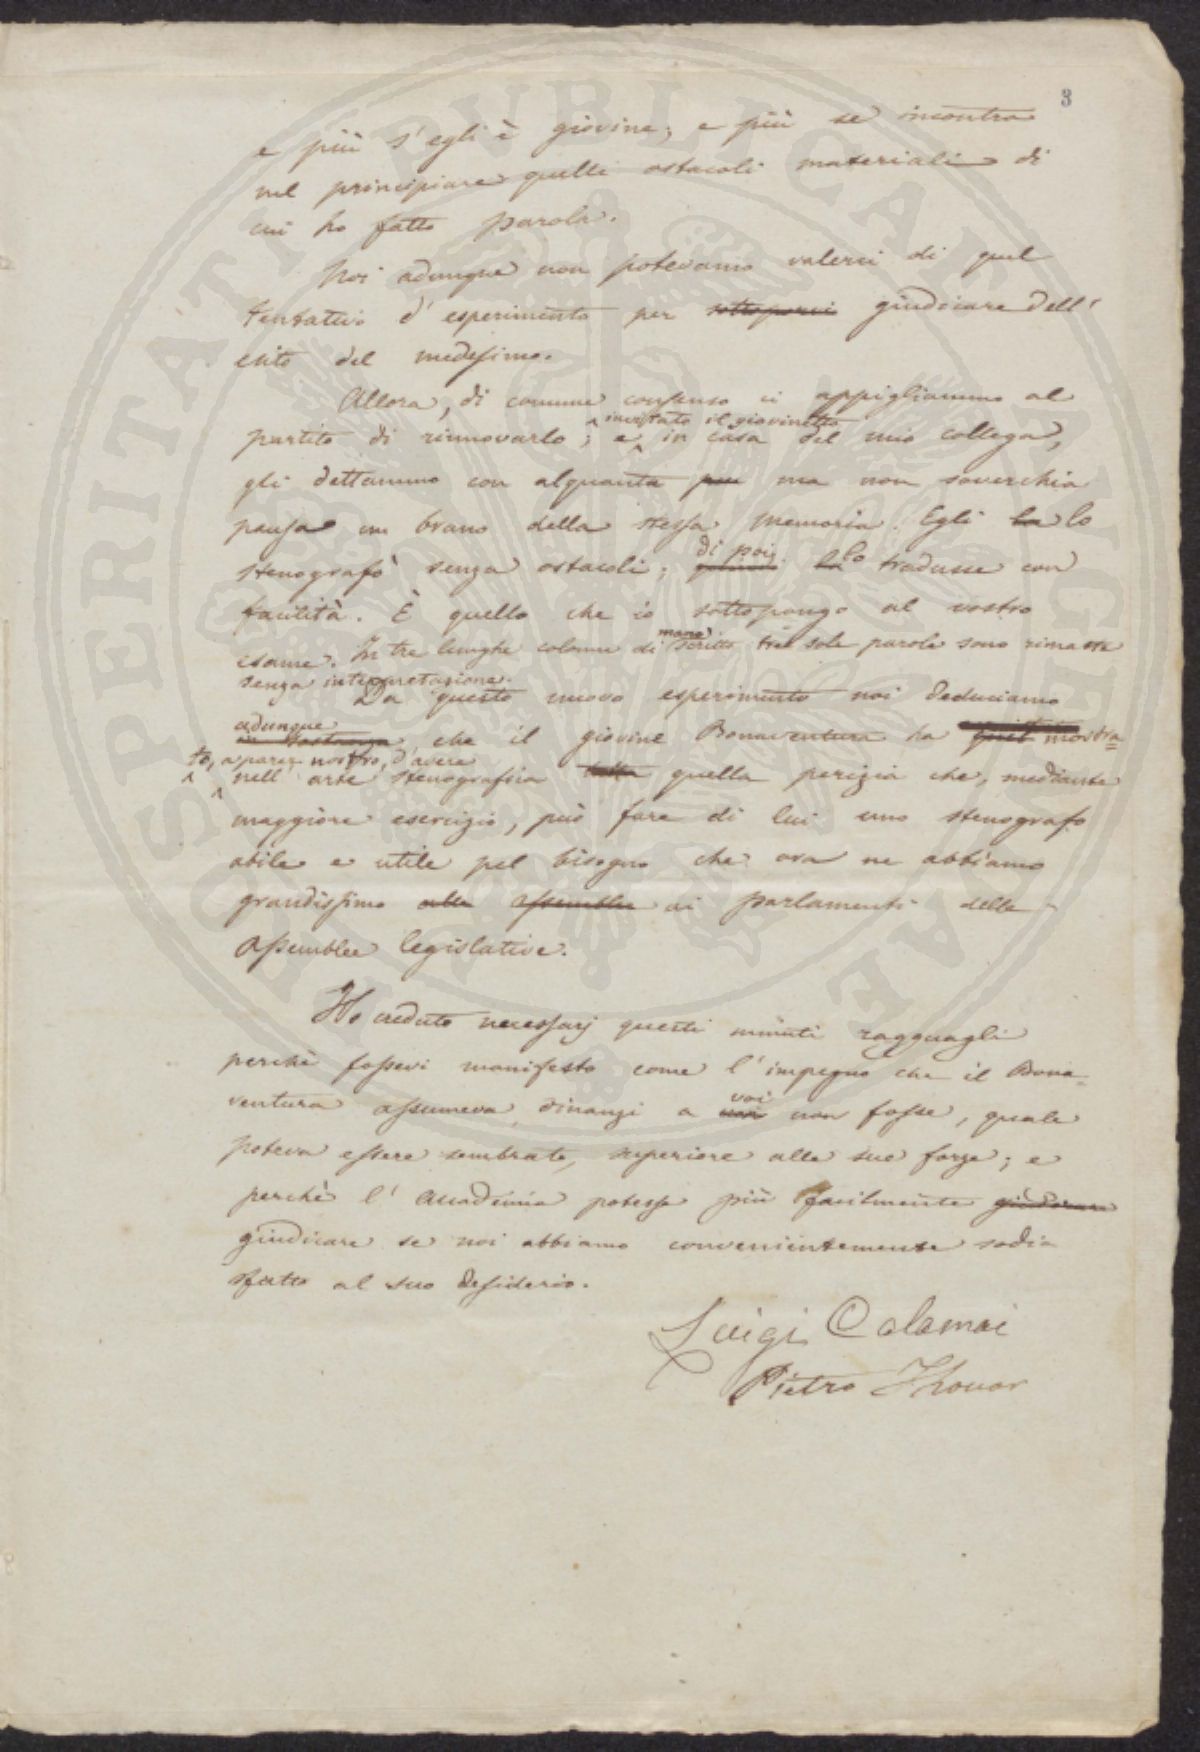 3
e più s'egli è giovine; e più se incontra
nel principiare quelli ostacoli materiali di
cui ho fatto parola.
Noi adunque non potevamo valerci di quel
tentativo d'esperimento per sottoporvi giudicare dell'
esito del medesimo.
Allora, di comune consenso ci appigliammo al
partito di rinnovarlo; e invitato il giovinetto in casa del mio collega,
gli dettammo con alquanta più ma non soverchia
pausa un brano della stessa memoria. Egli la lo
stenografò senza ostacoli; quindi di poi la lo tradusse con
facilità. È quello che io sottopongo al vostro
esame. In tre lunghe colonne di manoscritto tre sole parole sono rimaste
senza interpretazione.
Da questo nuovo esperimento noi deduciamo
in sostanza adunque che il giovine Bonaventura ha mostra=
to, a parer nostro, d'avere
nell'arte stenografica tutta quella perizia che, mediante
maggiore esercizio, può fare di lui uno stenografo
abile e utile pel bisogno che ora ne abbiamo
grandissimo alle assemblee ai parlamenti delle
assemblee legislative.
Ho creduto necessarj questi minuti ragguagli
perchè fossevi manifesto come l'impegno che il Bona=
ventura assumeva dinanzi a noi voi non fosse, quale
poteva essere sembrato, superiore alle sue forze; e
perchè l'Accademia potesse più facilmente giudicare
giudicare se noi abbiamo convenientemente sodis
sfatto al suo desiderio.
Luigi Calamai
Pietro Thouar
PROSPERITATI PUBLICAE AUGENDAE